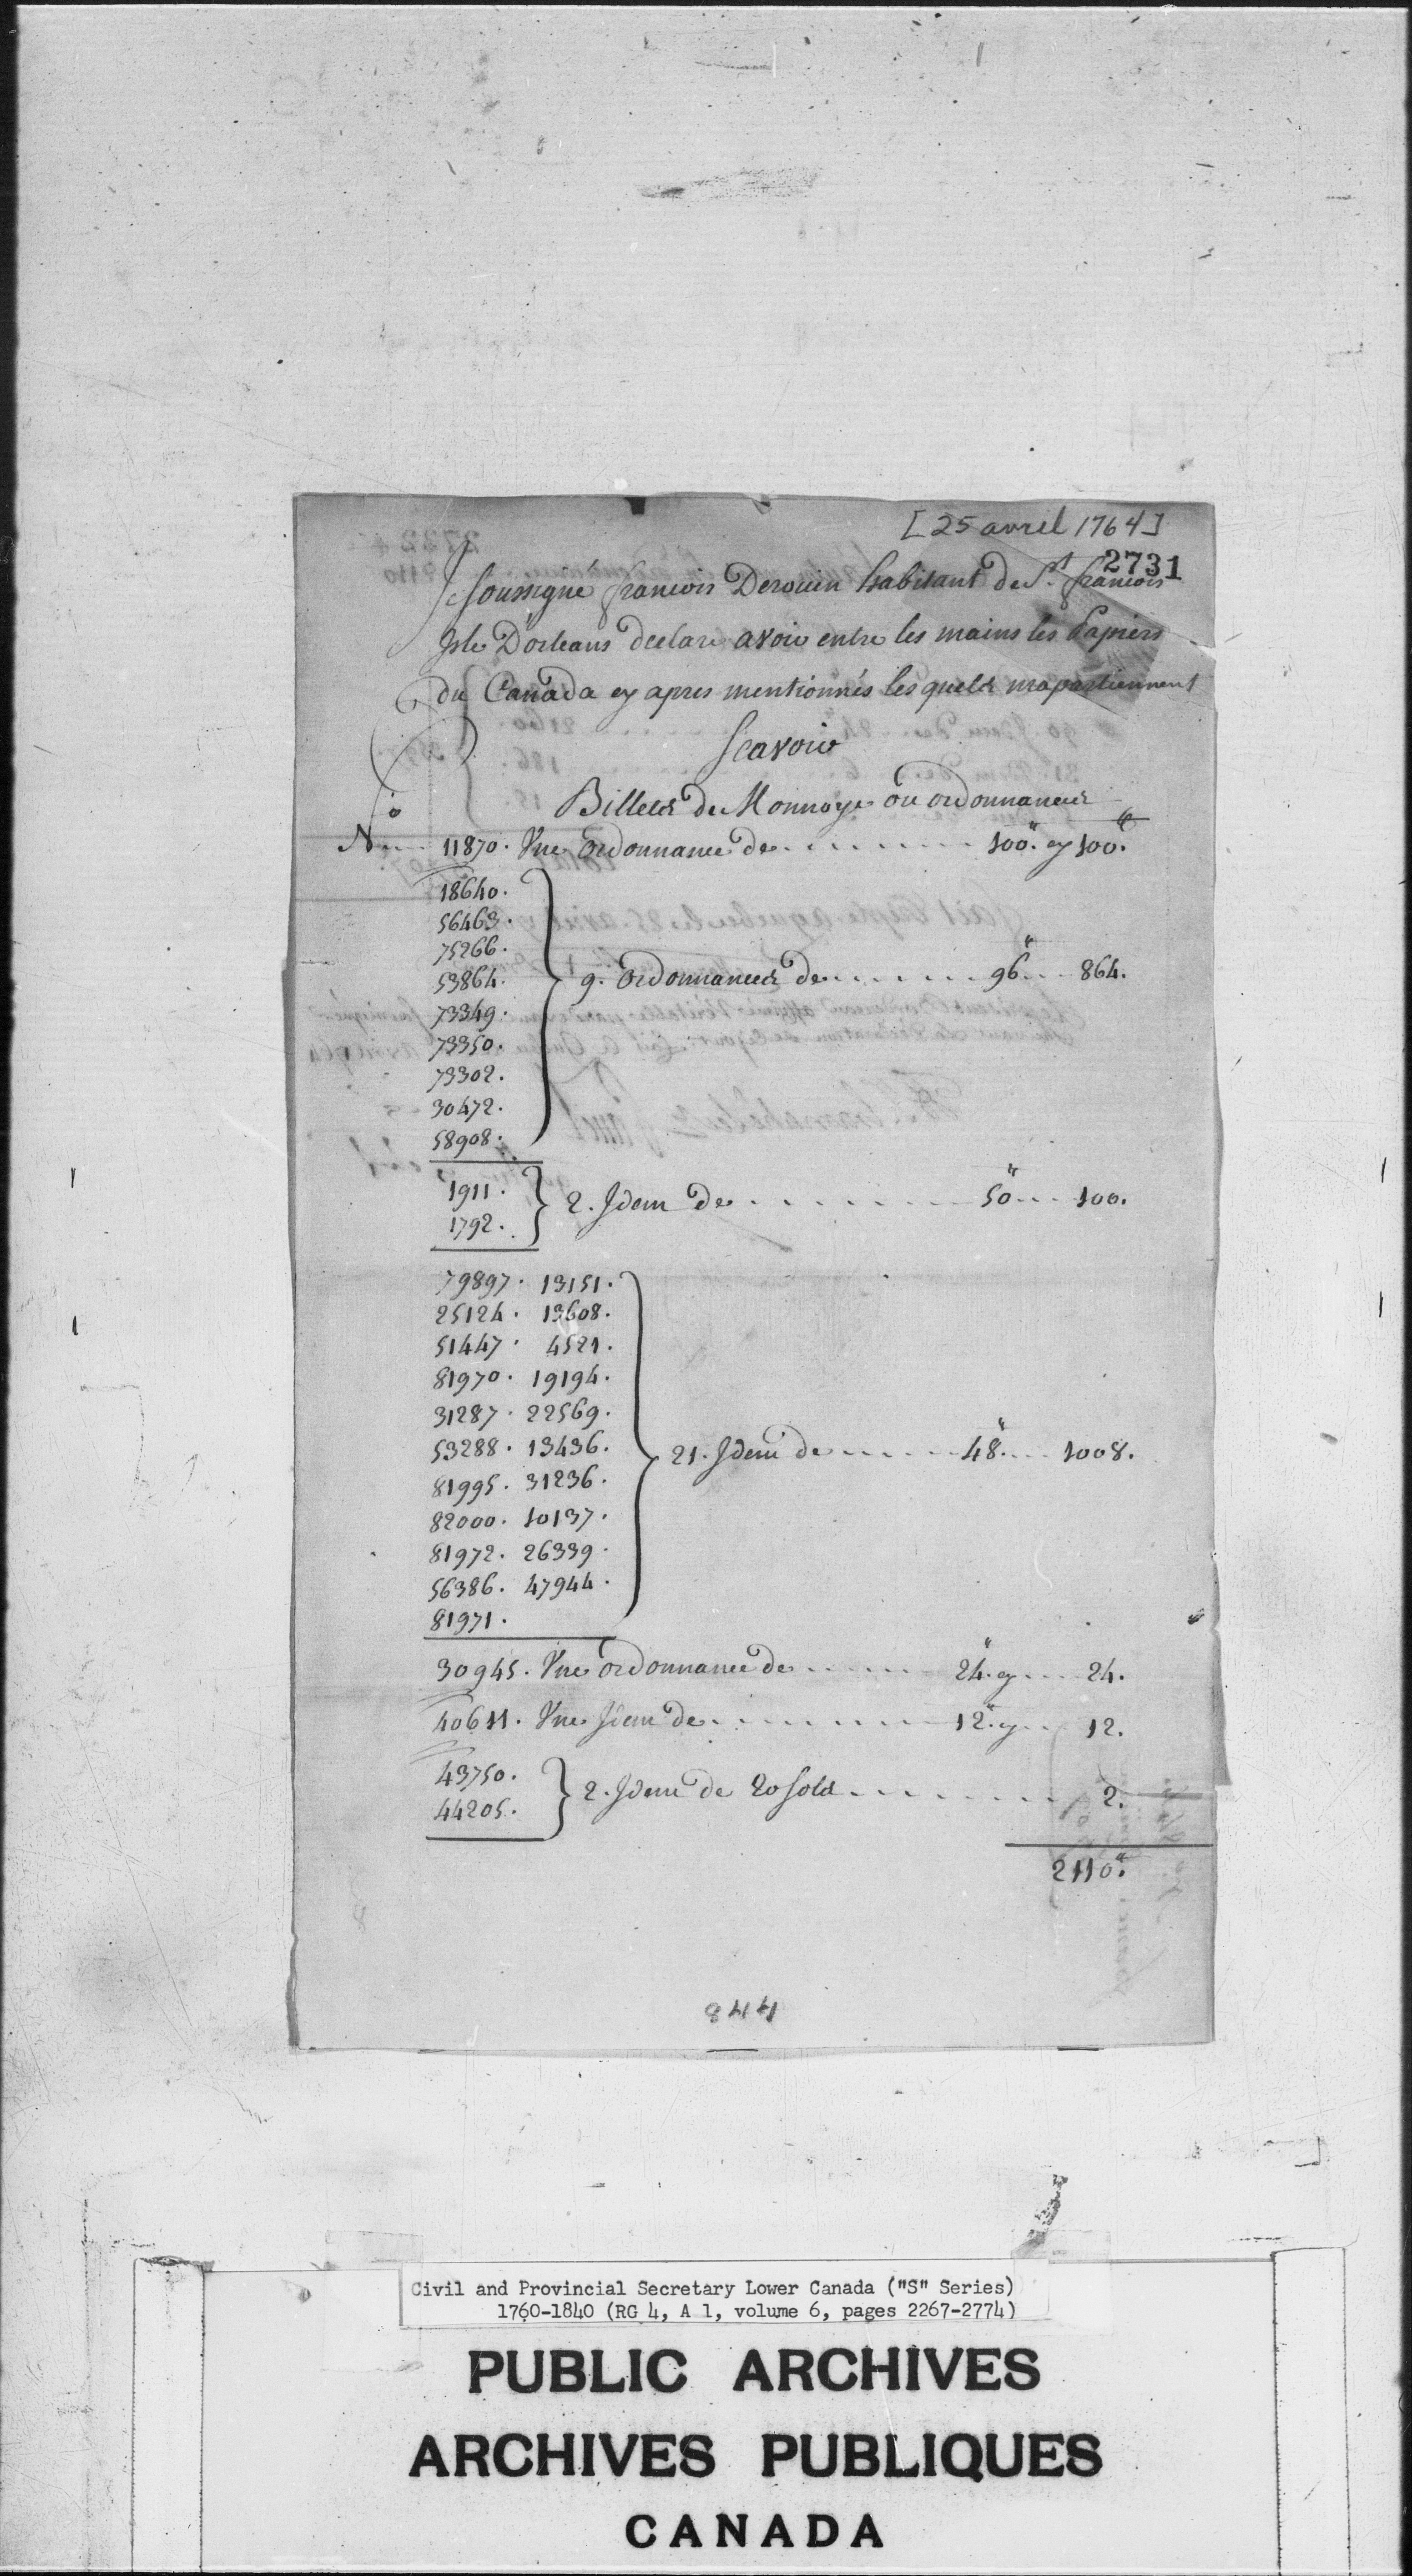 [25 avril 1764]
2731
Je soussigné francois Derouin habitant de St. francois
Isle Dorleans declare avoir entre les mains les Papiers
du Canada cy apres mentionnés les quels mapartiennent
Scavoir
Billets de Monnoye ou ordonnances
No 11870. Une Ordonnance de 100." cy 100."
18640.
56463.
75266.
53864. 9. Ordonnances de 96" 864.
73349.
73350.
73302.
30472.
58908.
1911. 2. Idem de 50" 100.
1792.
79897. 13151.
25124. 13608.
51447. 4521.
81970. 19194.
31287. 22569.
53288. 13436. 21. Idem de 48." 1008.
81995. 31236.
82000. 10137.
81972. 26339.
56386. 47944.
81971.
30945. Une Ordonnance de 24." cy 24.
40611. Une Idem de 12." cy 12.
43750. 2. Idem de 20 sols 2.
44205.
2110."
844
Civil and Provincial Secretary Lower Canada ("S" Series)
1760-1840 (RG 4, A 1, volume 6, pages 2267-2774)
PUBLIC ARCHIVES
ARCHIVES PUBLIQUES
CANADA